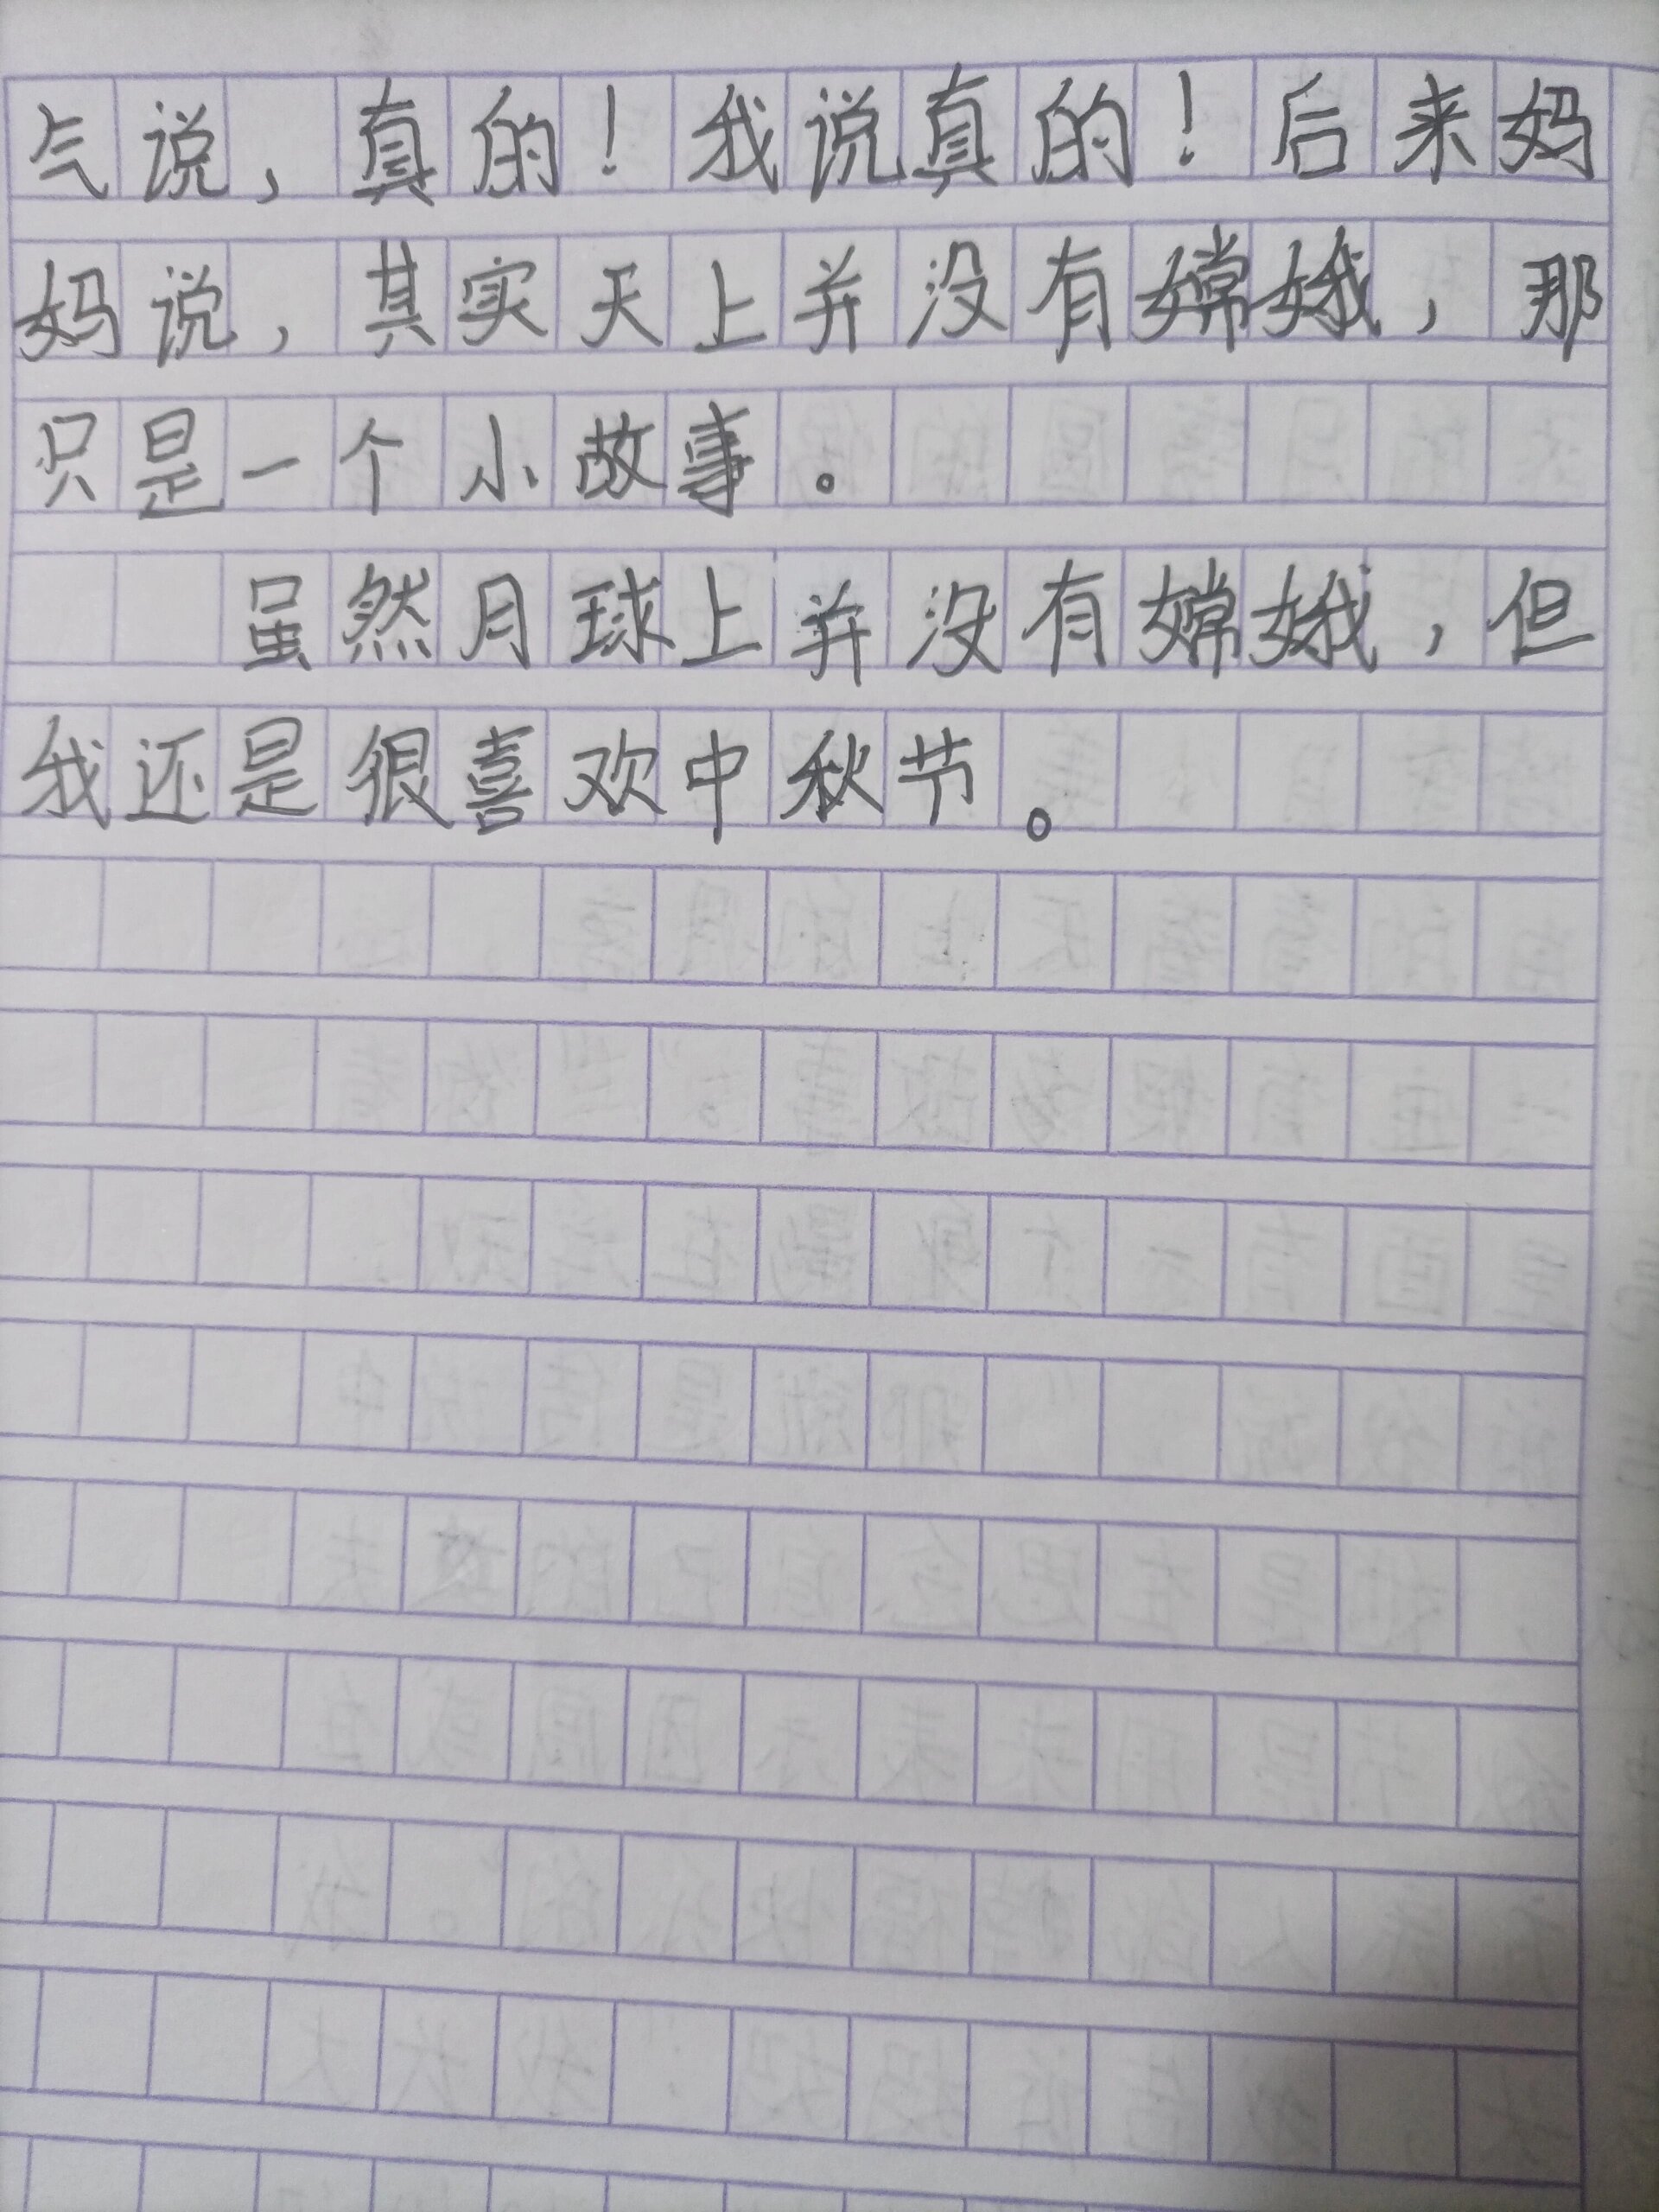 气说，真的！我说真的！后来妈
妈说，其实天上并没有嫦娥，那
只是一个小故事。
虽然月球上并没有嫦娥，但
我还是很喜欢中秋节。